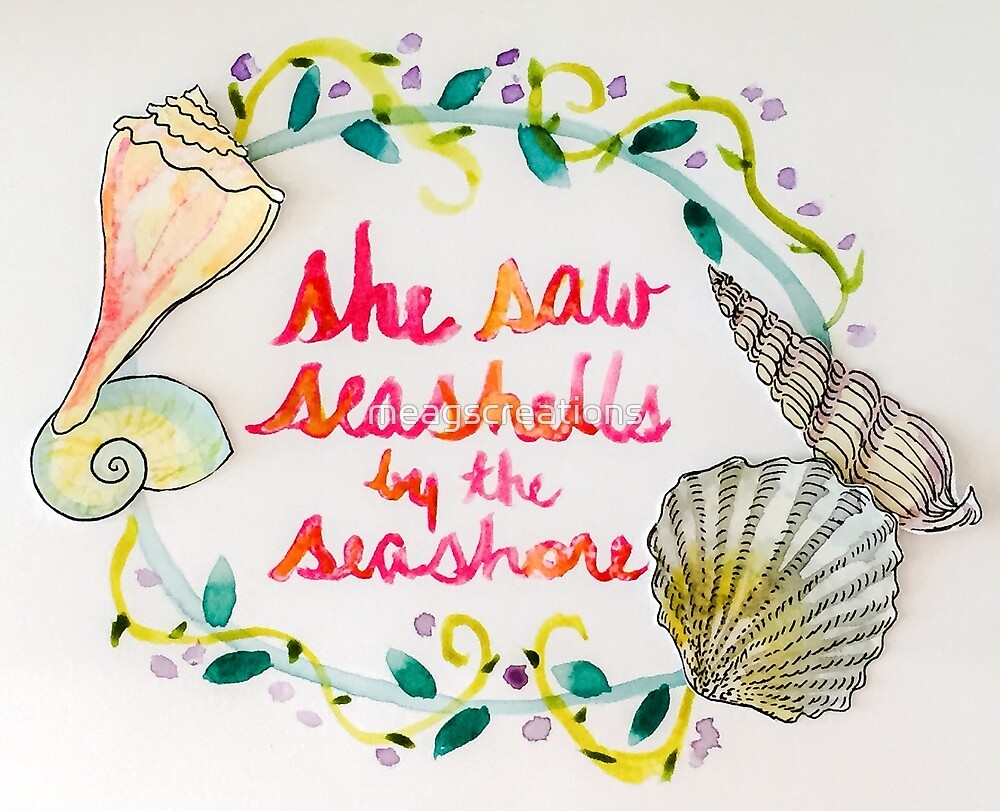 she saw
seashells
meagscreations
by the
seashore